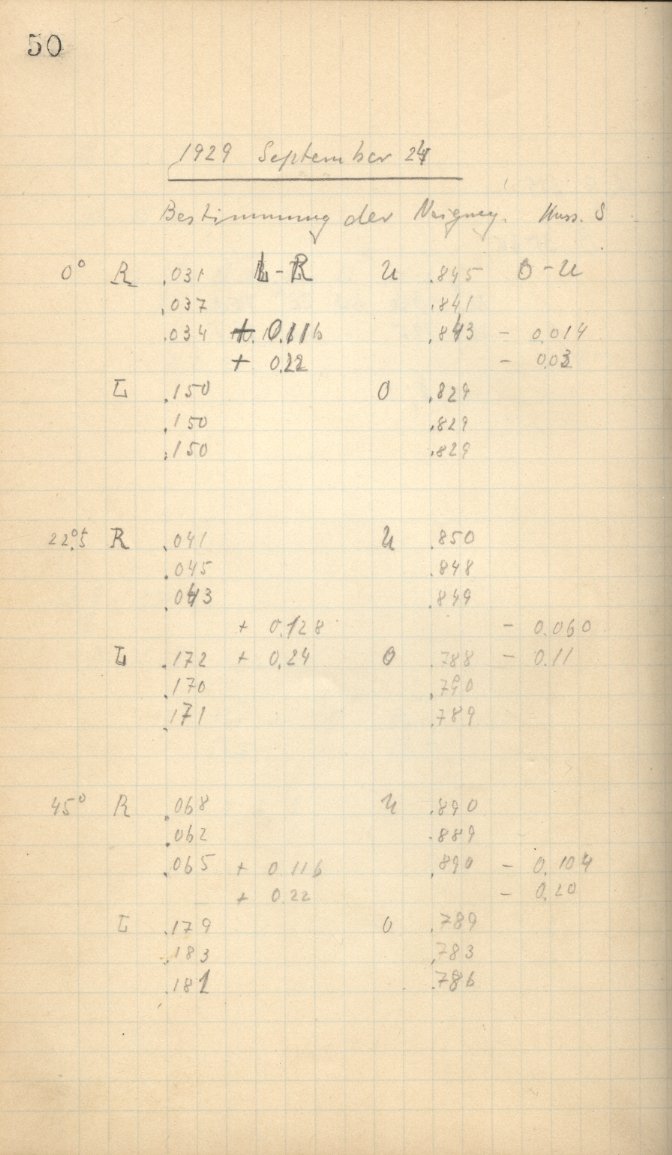 50
1929 September 24
Bestimmung der Neigung. S
0° R .031 L-R U .845 O-U
.037 .841
.034 + 0.116 .843 - 0.014
+ 0.22 - 0.03
L .150 O .829
.150 .829
.150 .829
22°.5 R .041 U .850
.045 .848
.043 .849
+ 0.128 - 0.060
L .172 + 0.24 O .788 - 0.11
.170 .790
.171 .789
45° R .068 U .890
.062 .889
.065 + 0.116 .890 - 0.104
+ 0.22 - 0.20
L .179 O .789
.183 .783
.181 .786